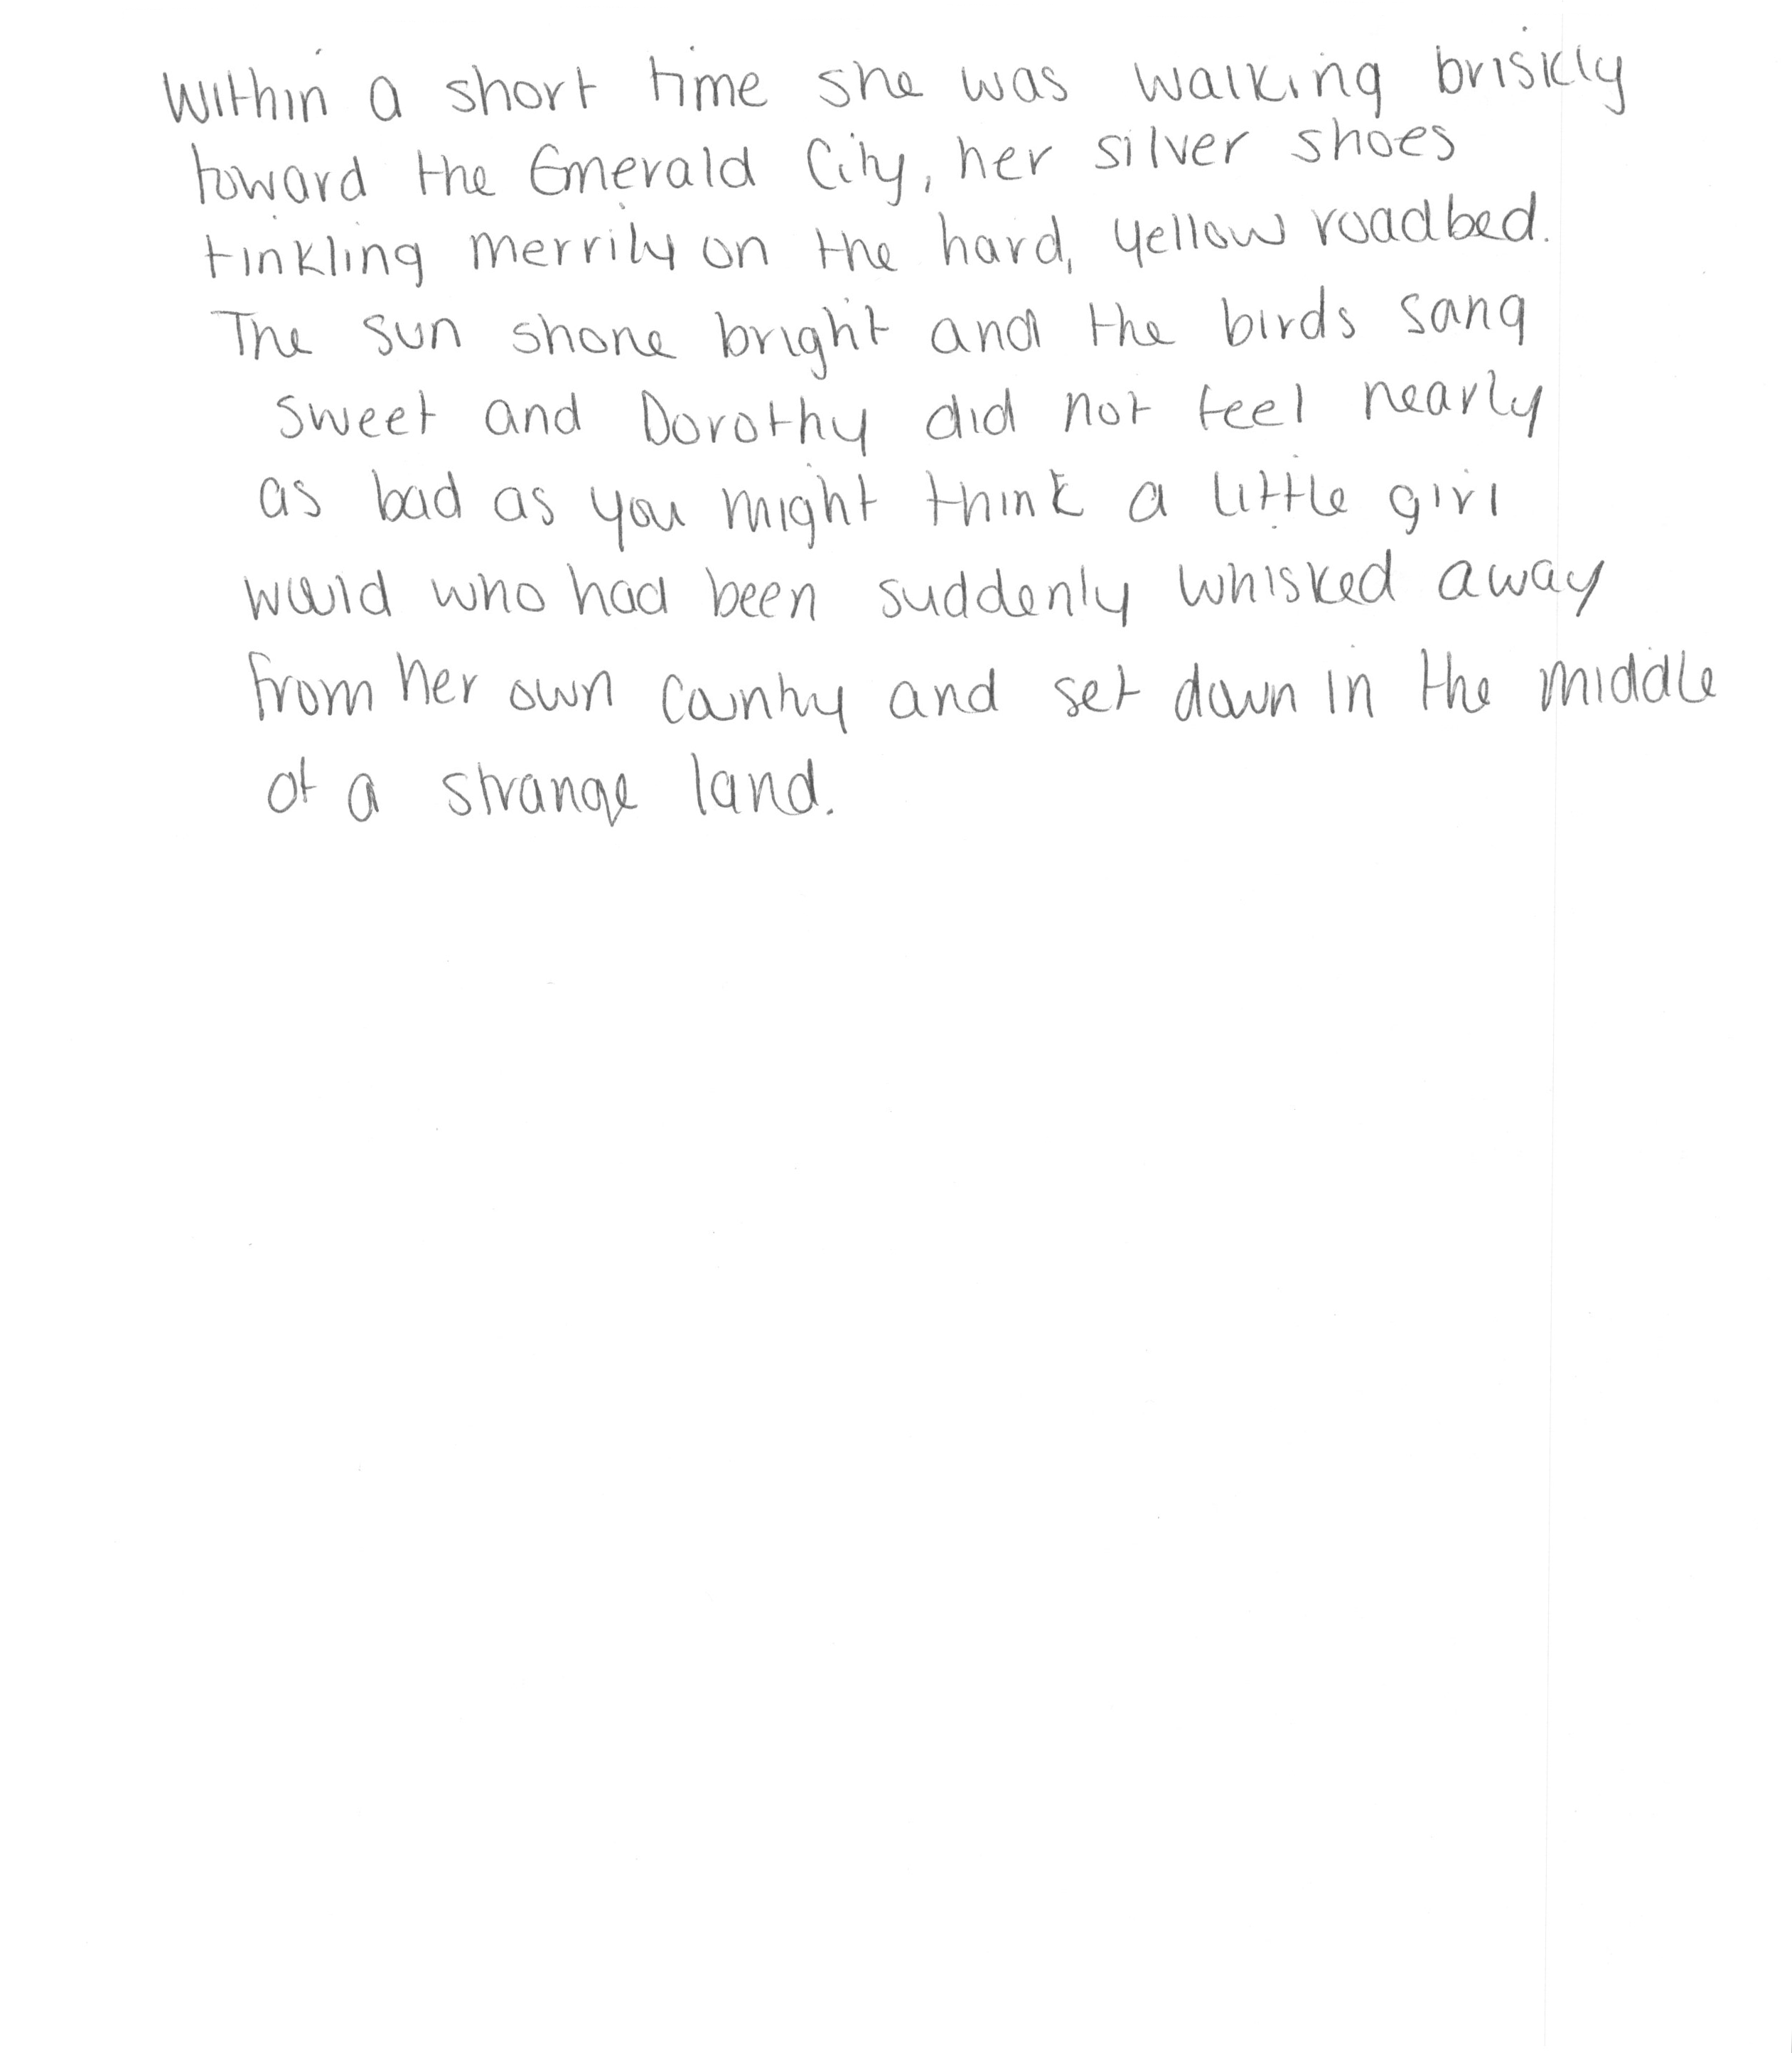 Within a short time she was walking briskly
toward the Emerald City, her silver shoes
tinkling merrily on the hard, yellow roadbed.
The sun shone bright and the birds sang
sweet and Dorothy did not feel nearly
as bad as you might think a little girl
would who had been suddenly whisked away
from her own country and set down in the middle
of a strange land.